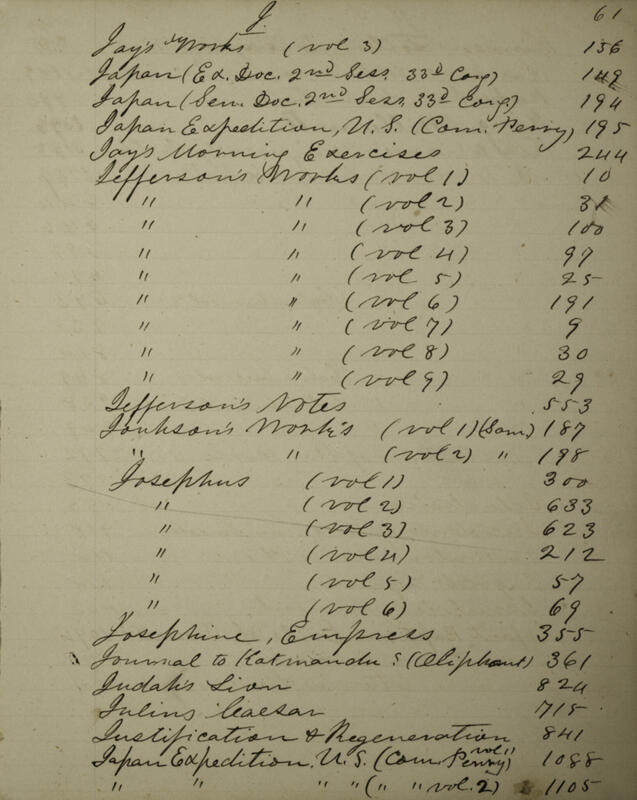 J. 61
Jay's Works (vol 3) 136
Japan (Ex. Doc. 2nd Sess. 33d Cong) 149
Japan (Sen. Doc. 2nd Sess. 33d Cong.) 194
Japan Expedition, U.S. (Com. Perry) 195
Jay's Morning Exercises 244
Jefferson's Works (vol 1) 10
" " (vol 2) 31
" " (vol 3) 100
" " (vol 4) 97
" " (vol 5) 25
" " (vol 6) 191
" " (vol 7) 9
" " (vol 8) 30
" " (vol 9) 29
Jefferson's Notes 553
Johnson's Work's (vol 1) (Sam) 187
" " (vol 2) " 198
Josephus (vol 1) 300
" (vol 2) 633
" (vol 3) 623
" (vol 4) 212
" (vol 5) 57
" (vol 6) 69
Josephine, Empress 355
Journal to Katmandu (Oliphant) 361
Judah's Lion 824
Julius Caesar 715
Justification & Regeneration 841
Japan Expedition, U.S. (Com. Perry vol 1) 1088
" " " " ( " " vol. 2) 1105